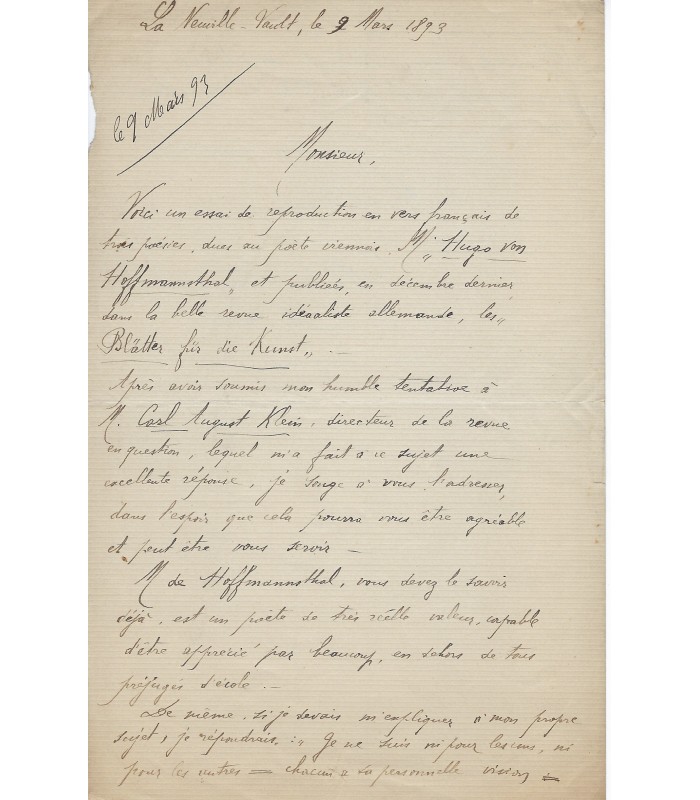 La Neuville-Vault, le 9 Mars 1893
le 9 Mars 93
Monsieur,
Voici un essai de reproduction en vers français de
trois poésies, dues au poète viennois, Mr „Hugo von
Hoffmannsthal„ et publiées, en décembre dernier
dans la belle revue idéaaliste allemande, les „
Blätter für die Kunst„ . —
Après avoir soumis mon humble tentative à
M. Carl August Klein, directeur de la revue
en question, lequel m'a fait à ce sujet une
excellente réponse, je songe à vous l'adresser,
dans l'espoir que cela pourra vous être agréable
et peut être vous servir —
M de Hoffmannsthal, vous devez le savoir
déjà, est un poète de très réelle valeur, capable
d'être apprécié par beaucoup, en dehors de tous
préjugés d'école. —
De même, si je devais m'expliquer à mon propre
sujet, je répondrais. :: Je ne suis ni pour les uns, ni
pour les autres = chacun a sa personnelle vision =